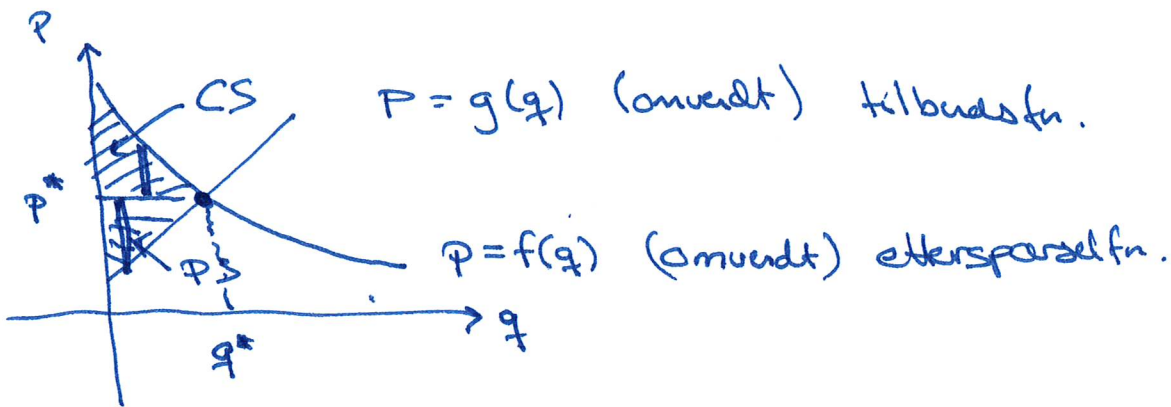 P
CS
P = g(q) (omvendt) tilbudsfn.
P*
P = f(q) (omvendt) etterspørselfn.
PS
q
q*